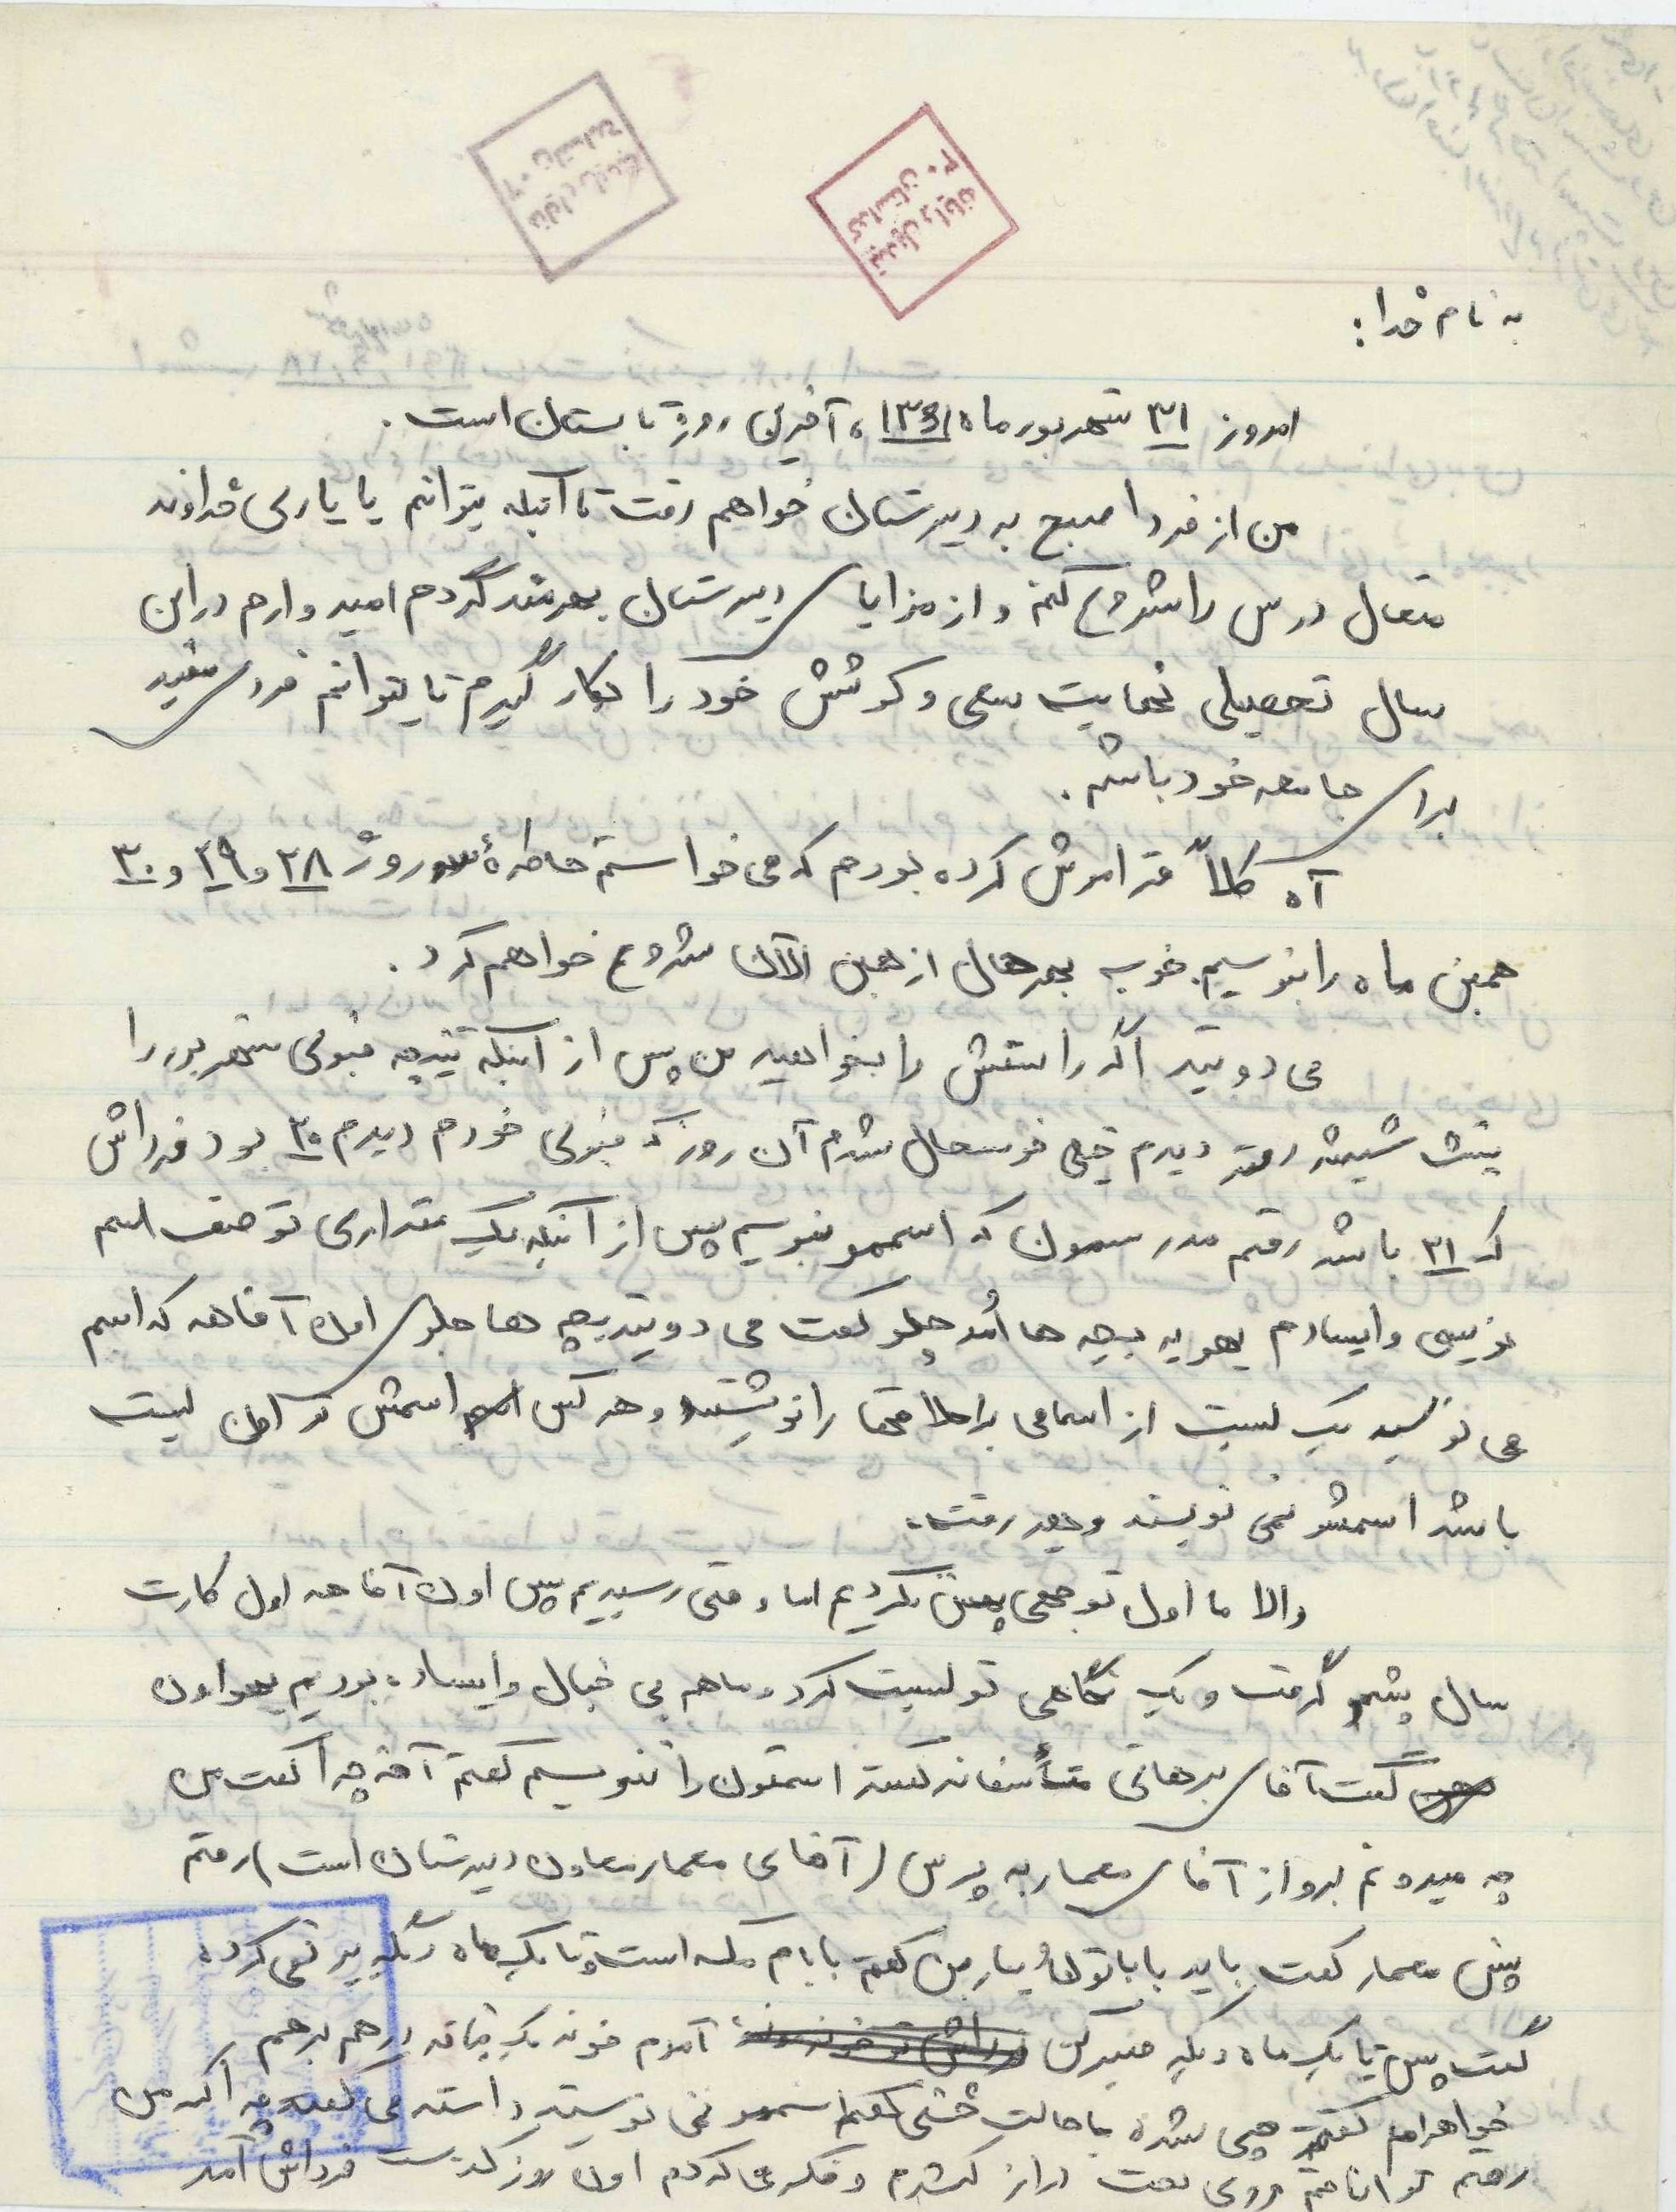 به نام خدا:
امروز ۳۱ شهریور ماه ۱۳۶۱، آخرین روز تابستان است.
من از فردا صبح به دبیرستان خواهم رفت تا آنکه بتوانم با یاری خداوند
متعال درس را شروع کنم و از مزایای دبیرستان بهرمند گردم امید وارم در این
سال تحصیلی نهایت سعی و کوشش خود را بکار گیرم تا بتوانم فردی مفید
برای جامعه خود باشم.
آه کلاً فراموش کرده بودم که می خواستم خاطرهٔ سه روز ۲۸ و ۲۹ و ۳۰
همین ماه را بنویسم. خوب بهرحال از همین الآن شروع خواهم کرد.
می دونید اگر راستش را بخواهید من پس از اینکه نتیجه قبولی شهریور را
پشت شیشه رفته دیدم خیلی خوشحال شدم آن روز که قبولی خودم دیدم ۳۰ بود فرداش
که ۳۱ باشد رفتم مدرسمون که اسممو بنویسم پس از آنکه یک مقداری تو صف اسم
نویسی وایسادم یهو یه بچه ها اُمد جلو گفت می دونید بچه ها جلوی اون آقاهه که اسم
می نویسد یک لیست از اسامی را نوشتند و هر کس اسمش تو اون لیست
باشد اسمشو نمی نویسند و بعد رفت.
والا ما اول توجهی بهش نکردیم اما وقتی رسیدیم پیش اون آقاهه اول کارت
سال پیشمو گرفت و یک نگاهی تو لیست کرد و ما هم بی خیال وایساده بودیم یهو اون
گفت آقای برهانی متأسفانه گفته اسمتون را ننویسیم گفتم آخه چرا گفت من
چه میدونم برو از آقای معمار به پرس (آقای معمار معاون دبیرستان است) رفتم
پیش معمار گفت باید باباتو بیاری من گفتم بابام مکه است و تا یک ماه دیگه بر نمی گرده
گفت پس تا یک ماه دیگه صبر کن آمدم خونه یک قیافه درهم برهم
خواهرام گفتند چی شده با حالت خشنی گفتم اسممو نمی نویسند
رفتم تو اتاقم روی تخت دراز کشیدم و فکر می کردم اون روز گذشت فرداش آمد